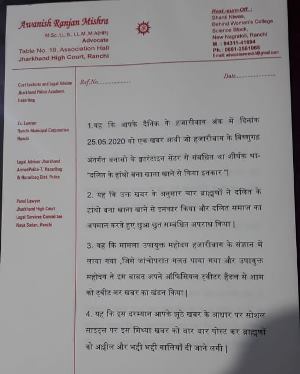 Awanish Ranjan Mishra
M.Sc, LL.B, LL.M, M.A(HR)
Advocate
Table No. 19, Association Hall
Jharkhand High Court, Ranchi
Resi-cum-Off :
Shanti Niwas,
Behind Women's College
Science Block,
New Nagratoli, Ranchi
Ref.No.
Date
Jharkhand Police Academy,
Hazaribag
Ranchi Municipal Corporation
Ranchi
Legal Advisor Jharkhand
Panel Lawyer
Jharkhand High Court
Legal Services Committee
1.यह कि आपके दैनिक के हजारीबाग अंक में दिनांक
25.05.2020 को एक खबर छापी जो हजारीबाग के बिष्णुगढ़
अंतर्गत बनासो के क्वारंटाइन सेंटर से संबंधित था शीर्षक था-
"दलित के हाथों बना खाना खाने से किया इनकार"|
2. यह कि उक्त खबर के अनुसार चार ब्राह्मणों ने दलित के
हाथों बना खाने से इनकार किया और दलित समाज का
अपमान करते हुए छुआ छुत सम्बंधित अपराध किया |
3. यह कि मामला उपायुक्त महोदय हजारीबाग के संज्ञान में
लाया गया ,जिसे जांचोपरांत गलत पाया गया और उपायुक्त
महोदय ने इस बाबत अपने ऑफिसियल ट्वीटर हैंडल से शाम
को ट्वीट कर खबर का खंडन किया |
4. यह कि इस दरम्यान आपके झूठे खबर के आधार पर सोशल
साइट्स पर इस मिथ्या खबर को बार बार पोस्ट कर ब्राह्मणों
को अश्लील और भद्दी भद्दी गालियाँ दी जाने लगी |